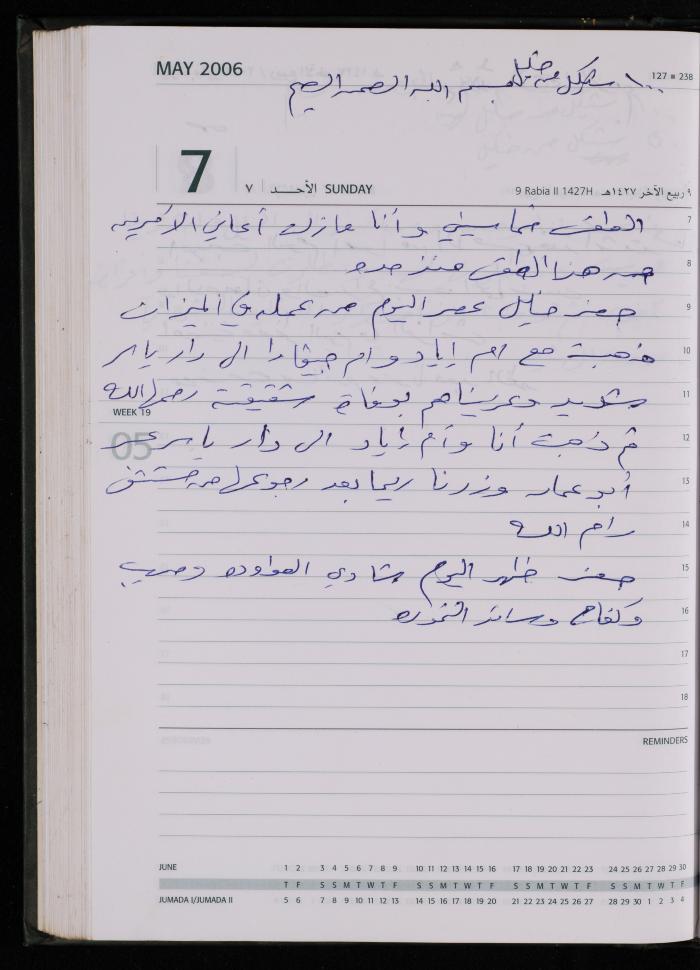 MAY 2006
127 ▪ 238
١٠٠ شيكل من خليل بسم الله الرحمن الرحيم
7
٧ الأحد SUNDAY
9 Rabia II 1427H ٩ ربيع الآخر ١٤٢٧هـ
7
الطقس خماسيني وأنا مازلت أعاني الأمرين
8
من هذا الطقس منذ مدة
9
حضر خليل عصر اليوم من عمله في الميزان
10
ذهبت مع ام إياد وام جيفارا الى دار ياسر
11
شديد وعزيناهم بوفاة شقيقته رحمها الله
WEEK 19
05
12
ثم ذهبت أنا وأم إياد الى دار ياسر
13
أبو عمار وزرنا ريما بعد رجوعها من مستشفى
14
رام الله
15
حضر ظهر اليوم شادي العواوده وصهيب
16
وكفاح وسائد النمورة
17
18
REMINDERS
JUNE 1 2 3 4 5 6 7 8 9 10 11 12 13 14 15 16 17 18 19 20 21 22 23 24 25 26 27 28 29 30
T F S S M T W T F S S M T W T F S S M T W T F S S M T W T F
JUMADA I/JUMADA II 5 6 7 8 9 10 11 12 13 14 15 16 17 18 19 20 21 22 23 24 25 26 27 28 29 30 1 2 3 4